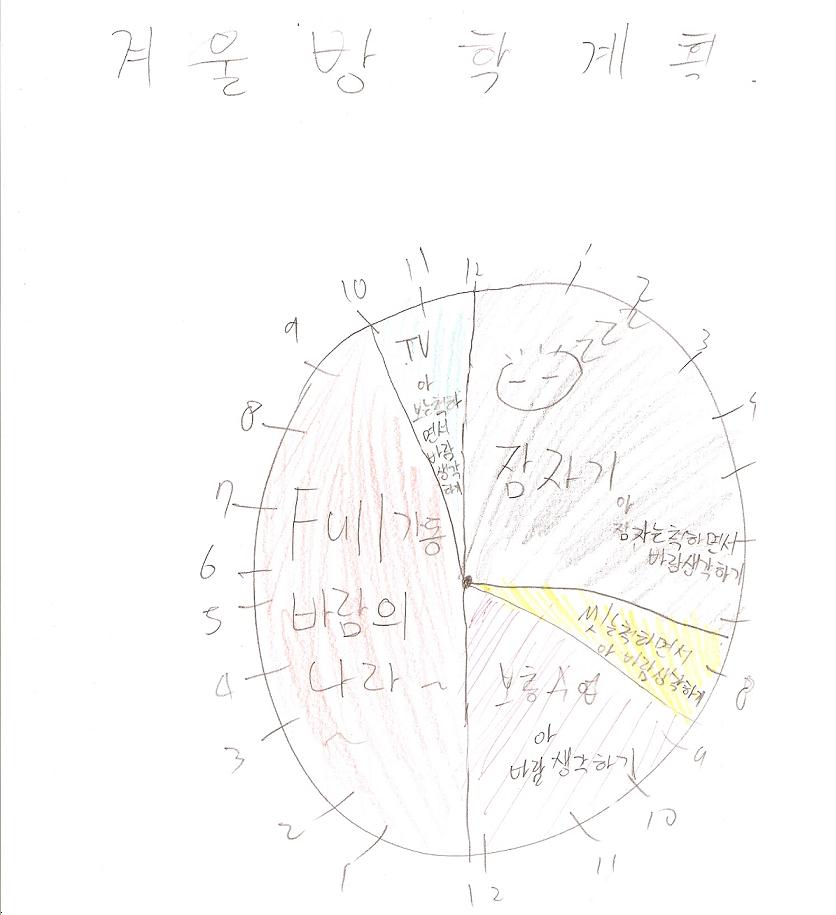 겨울 방 학 계 획.
12
1
Z Z Z
3
4
8
9
10
11
12
1
2
3
4
5
6
7
8
9
10
11
TV
아
보는척하
면서
바람
생각
하기
잠자기
아
잠자는척하면서
바람생각하기
씻는척하면서
아 바람생각하기
보충수업
아
바람생각하기
Full가동
바람의
나라~
~